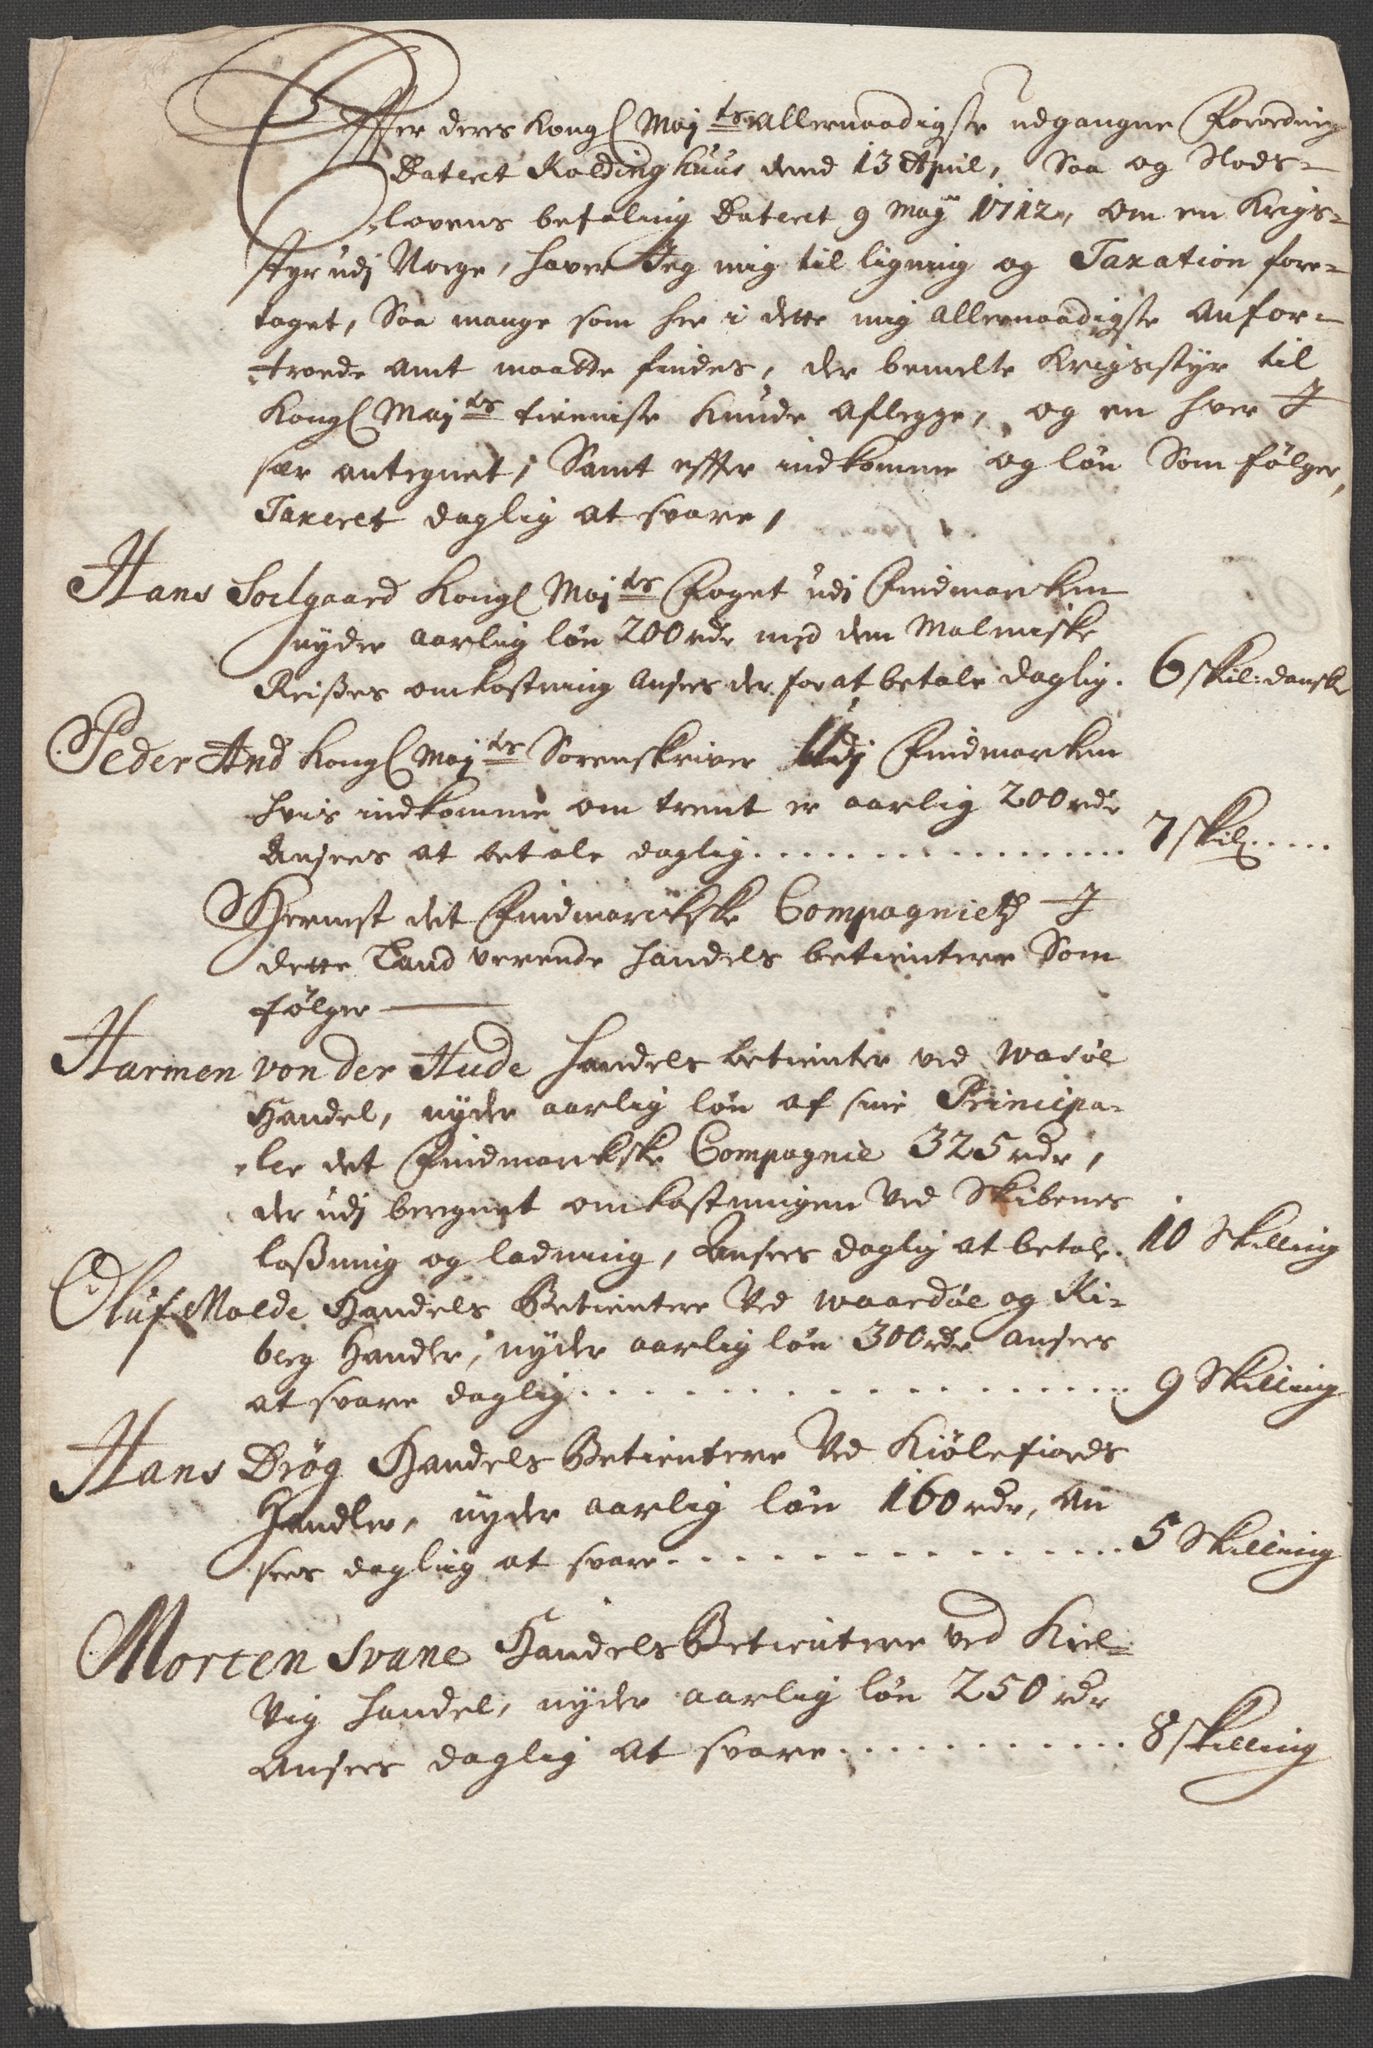 Effter deres Kongl Maj:ts Allernaadigste udgangne Forordning
Datert Koldinghuus dend 13 April, Saa og Slods-
lovens befaling Datert 9 Maij 1712, om en Krigs-
styr udj Norge, haver Jeg mig til ligning og Taxation fore-
taget, Saa mange som her i dette mig allernaadigste anfor-
troede Amt maatte findes, der bemelte Krigsstyr til
Kongl Maj:ts tienniste kunde aflegge, og en hver J
sær antegnet, Samt effter indkomme og løn Som følger,
Taxeret daglig at svare,
Hans Soelgaard Kongl Maj:ts Foget udi Findmarken
nyder aarlig løn 200 rdr med den Malmiske
Reises omkostning Ansees der for at betale daglig. 6 skil: danske
Peder And Kongl Maj:ts Sorenskriver Udj Findmarken
hvis indkomme om trent er aarlig 200 rdr
Ansees at betale daglig................ 7 skil.....
Hernest det Findmarckske Compagnietz J
dette Land verende handels betientere Som
følger
Harmen von der Hude handels betienter ved Wadsøe
Handel, nyder aarlig løn af sine Principa-
ler det Findmarckske Compagnie 325 rdr,
der udj beregnet omkostningen Ved Skibenes
losning og ladning, Ansees daglig at betale. 10 Skilling
Oluf Molde Handels Betientere Ved Waardøe og Ki-
berg Handler, nyder aarlig løn 300 rdr ansees
at svare daglig.................. 9 Skilling
Hans Drøg Handels Betientere Ved Kiølefiords
Handler, nyder aarlig løn 160 rdr, An
sees daglig at svare................ 5 Skilling
Morten Svane Handels Betientere ved Kiel-
Vig handel, nyder aarlig løn 250 rdr
Ansees daglig at svare............ 8 skilling